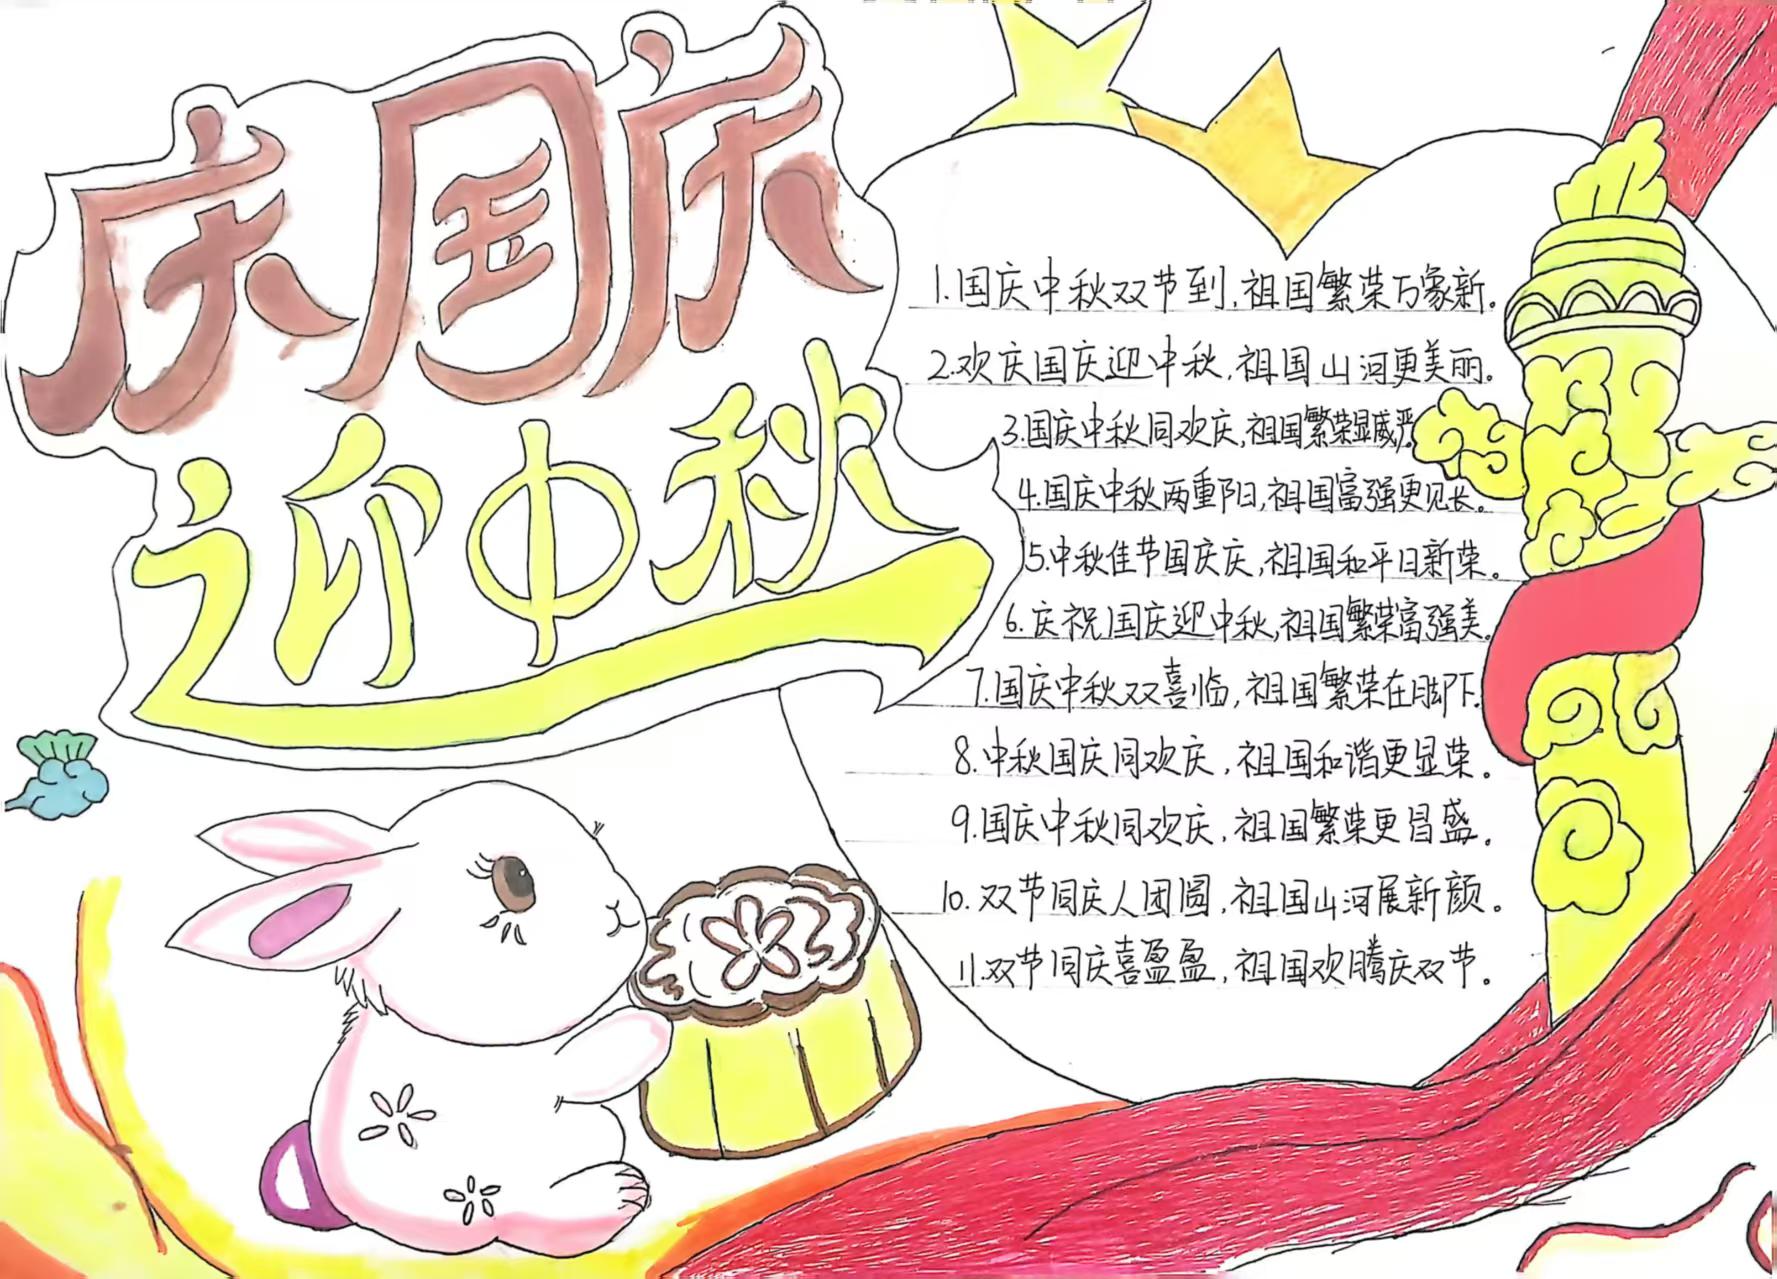 庆国庆
迎中秋
1.国庆中秋双节到,祖国繁荣万象新。
2.欢庆国庆迎中秋,祖国山河更美丽。
3.国庆中秋同欢庆,祖国繁荣显威严
4.国庆中秋两重阳,祖国富强更见长。
5.中秋佳节国庆庆,祖国和平日新荣。
6.庆祝国庆迎中秋,祖国繁荣富强美。
7.国庆中秋双喜临,祖国繁荣在脚下.
8.中秋国庆同欢庆,祖国和谐更显荣。
9.国庆中秋同欢庆,祖国繁荣更昌盛。
10.双节同庆人团圆,祖国山河展新颜。
11.双节同庆喜盈盈,祖国欢腾庆双节。